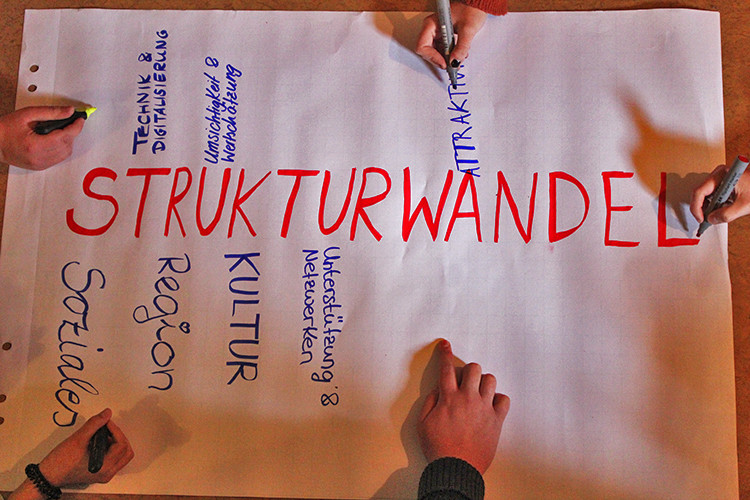 TECHNIK &
DIGITALISIERUNG
Umsichtigkeit &
Wertschätzung
ATTRAKTIV
STRUKTURWANDEL
Soziales
Region
KULTUR
Unterstützung &
Netzwerken